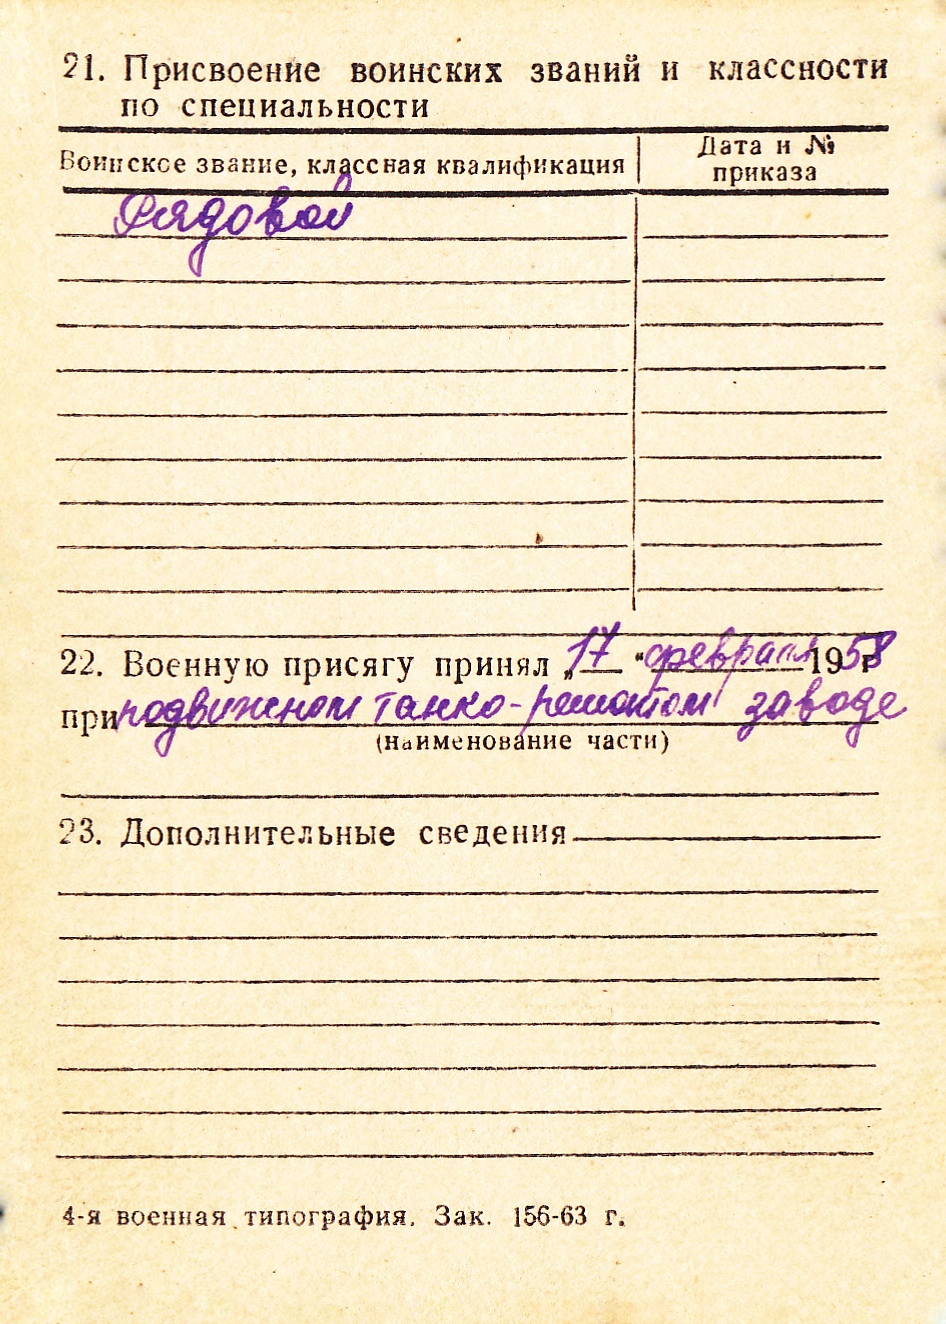 21. Присвоение воинских званий и классности
по специальности
Воинское звание, классная квалификация
Дата и №
приказа
Рядовой
22. Военную присягу принял „17“ февраля 1958 г
при подвижном танко-ремонтом заводе
(наименование части)
23. Дополнительные сведения
4-я военная типография. Зак. 156-63 г.